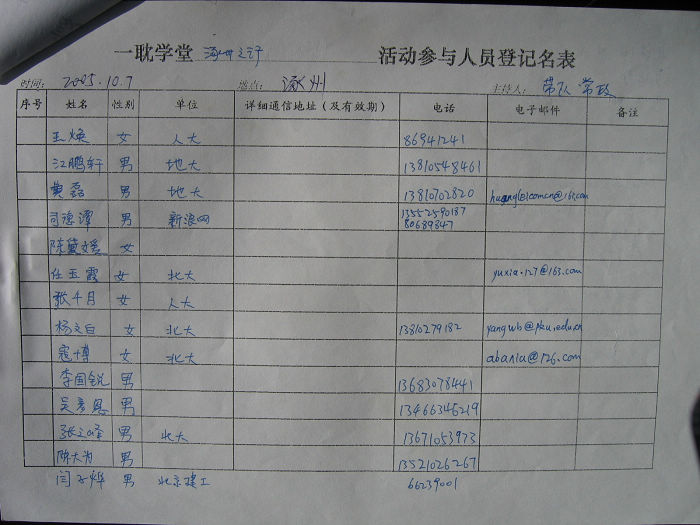 一耽学堂 涿州之行 活动参与人员登记名表
时间: 2005.10.7 地点: 涿州 主持人: 带队
序号 姓名 性别 单位 详细通信地址（及有效期） 电话 电子邮件 备注
王焕 女 人大 86941241
江鹏轩 男 地大 13810548461
黄磊 男 地大 13810702820
司德潭 男 新浪网 13552590187
80689847
陈黛文 女
任玉霞 女 北大 yuxia.127@163.com
张千月 女 人大
杨文白 女 北大 13810279182 yangwb@pku.edu.cn
寇博 女 北大 abania@126.com
李国锐 男 13683078441
吴彦恩 男 13466346219
张 男 北大 13671053973
陈大为 男 13521026267
闫子烨 男 北京建工 66239001